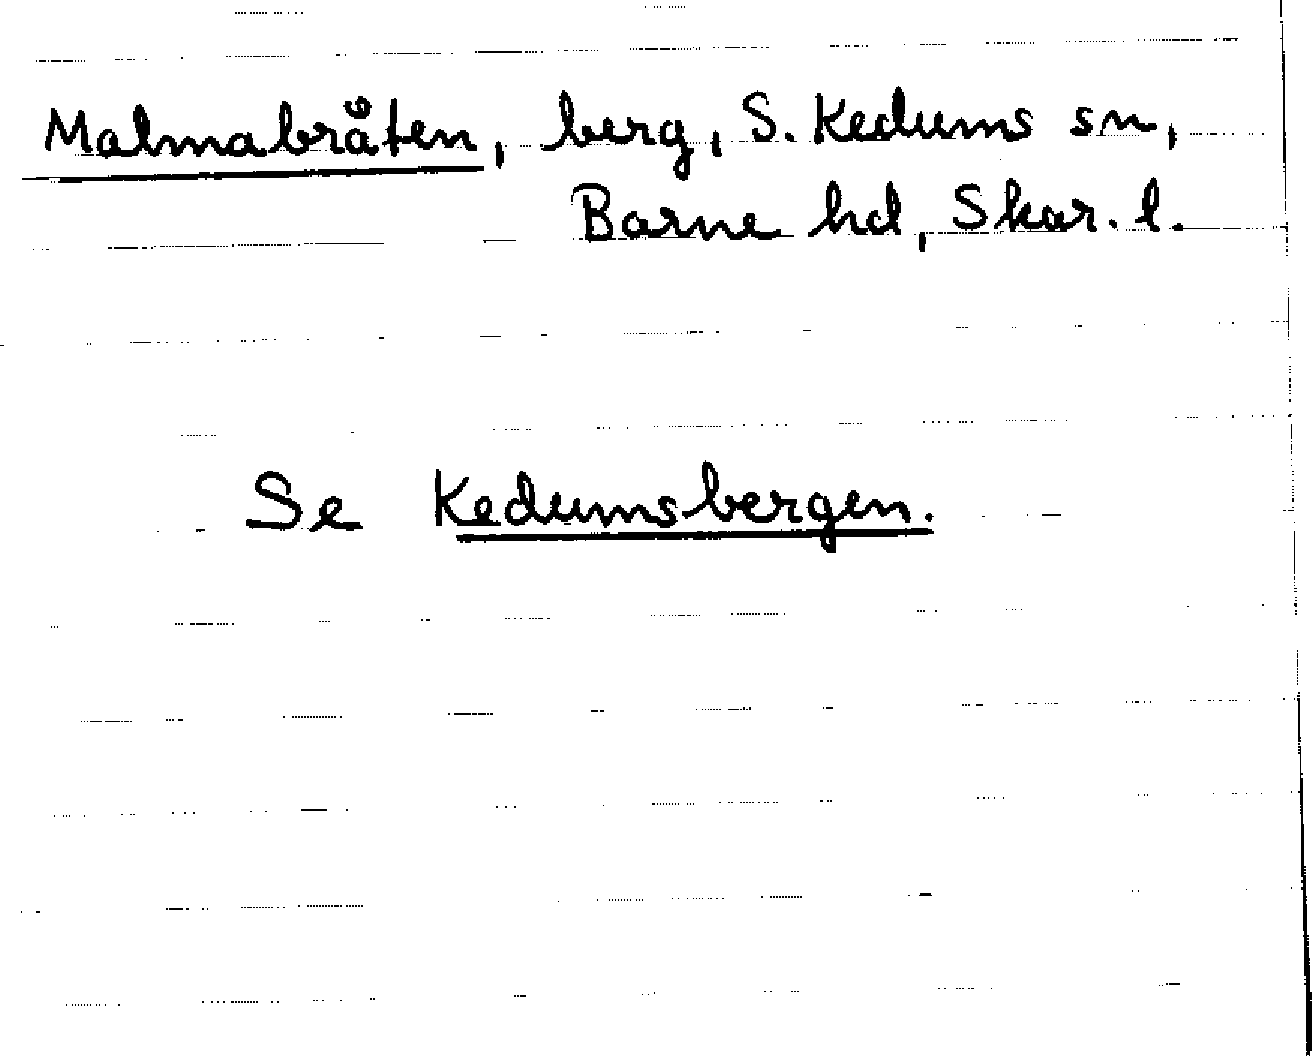 Malmabråten, berg, S. Kedums sn,
Barne hd, Skar. l.
Se Kedumsbergen.